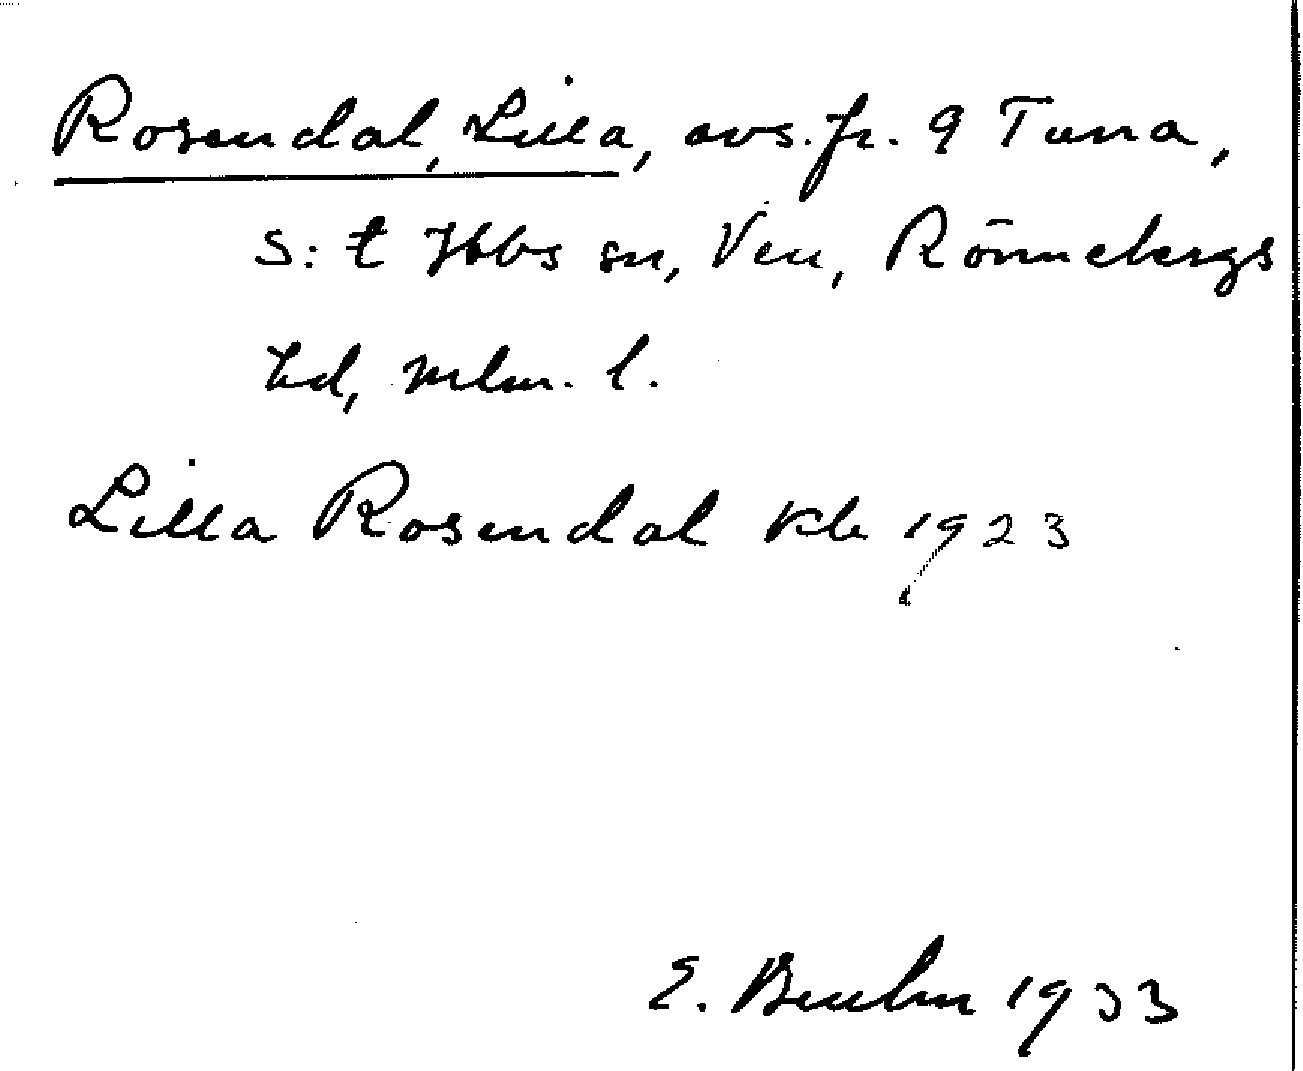 Rosendal, Lilla, avs. fr. 9 Tuna,
S:t Ibbs sn, Ven, Rönnebergs
hd, Mlm. l.
Lilla Rosendal Kb 1923
E. 1933